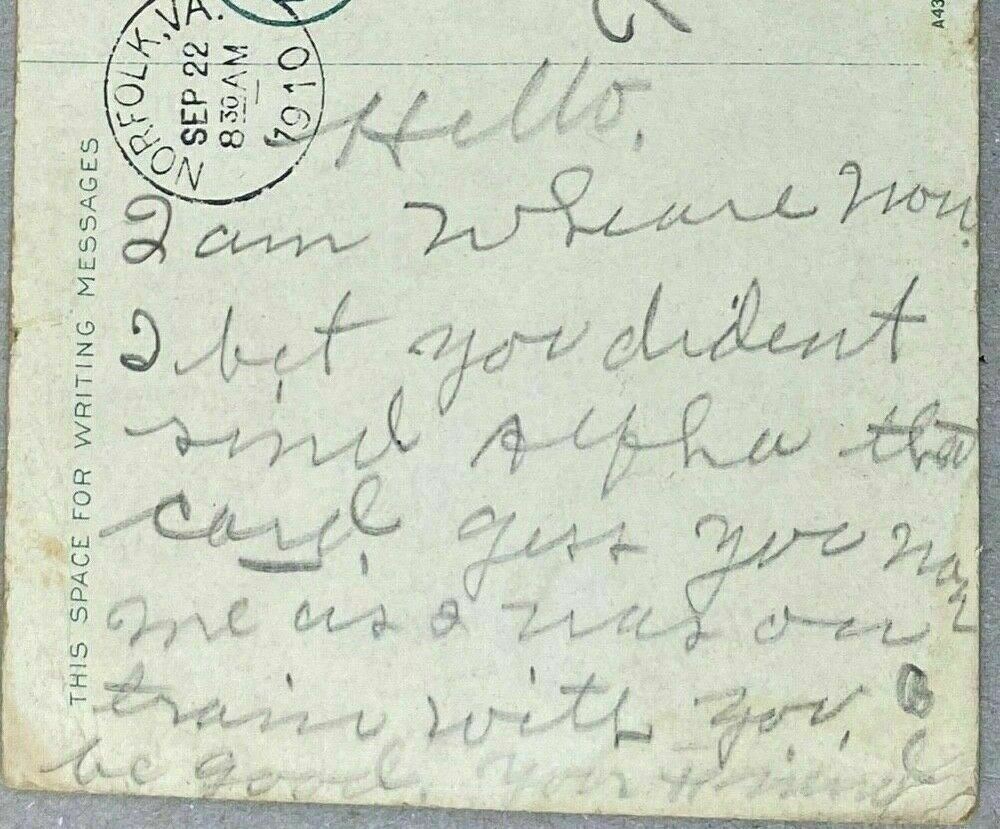 NORFOLK, VA.
SEP 22
8 30 AM
1910
A43
THIS SPACE FOR WRITING MESSAGES
Hello.
I am wheare now.
I bet you dident
send Alpha that
card, gess you now
me as I was on
train with you,
be good, your